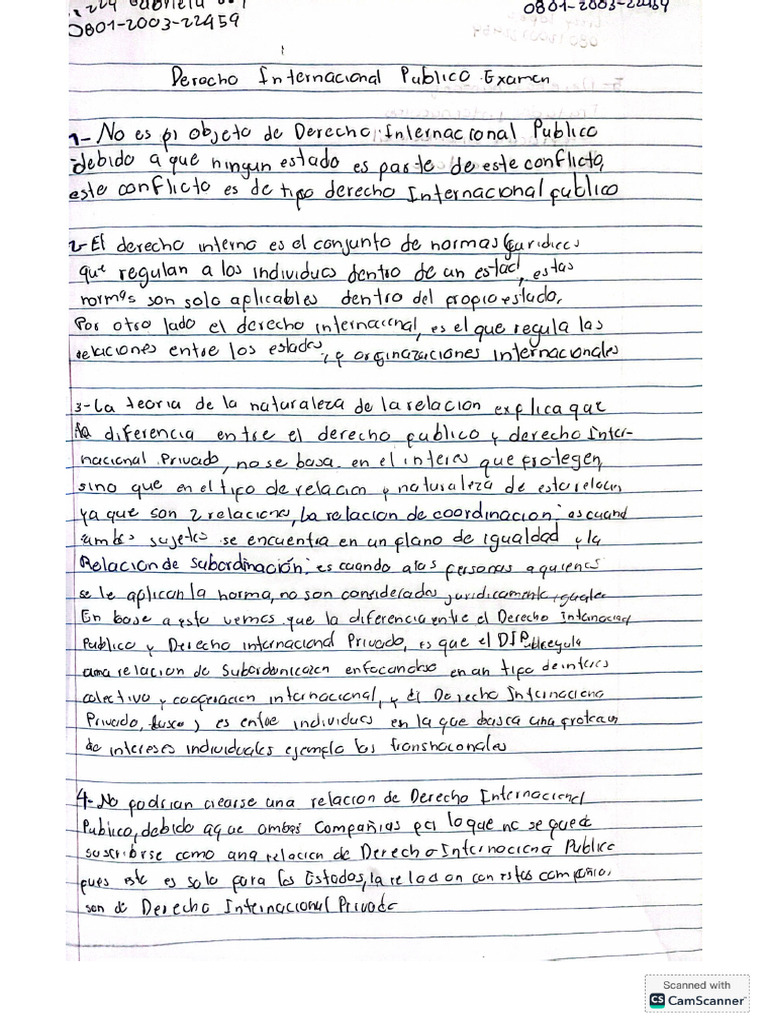 0801-2003-22459
0801-2003-22459
Derecho Internacional Publico Examen
1- No es pi objeto de Derecho Internacional Publico
debido a que ningun estado es parte de este conflicto,
este conflicto es de tipo derecho Internacional publico
2- El derecho interno es el conjunto de normas juridicas
que regulan a los individuos dentro de un estad, estas
normas son solo aplicables dentro del propio estado.
Por otro lado el derecho internacional, es el que regula las
relaciones entre los estados, y organizaciones internacionales
3- La teoria de la naturaleza de la relacion explica que
la diferencia entre el derecho publico y derecho Inter-
nacional Privado, no se basa en el interes que protegen,
sino que en el tipo de relacion y naturaleza de esta relacion
ya que son 2 relaciones, La relacion de coordinacion: es cuand
ambos sujetos se encuentra en un plano de igualdad y la
Relacion de subordinación: es cuando a las personas a quienes
se le aplican la norma, no son considerados juridicamente iguales
En base a esto vemos que la diferencia entre el Derecho Internacional
Publico y Derecho internacional Privado, es que el DIPublic regula
una relacion de en un tipo de interes
colectivo y cooperacion internacional, y el Derecho Internaciona
Privado, es entre individuos en la que busca una proteccion
de intereses individuales ejemplo las transnacionales
4- No podrian crearse una relacion de Derecho Internacional
Publico, debido a que ambas Compañias por lo que no se puede
suscribirse como una relacion de Derecho Internaciona Publico
pues este es solo para los Estados, la relacion con estas compañias
son de Derecho Internacional Privado
Scanned with
CS CamScanner